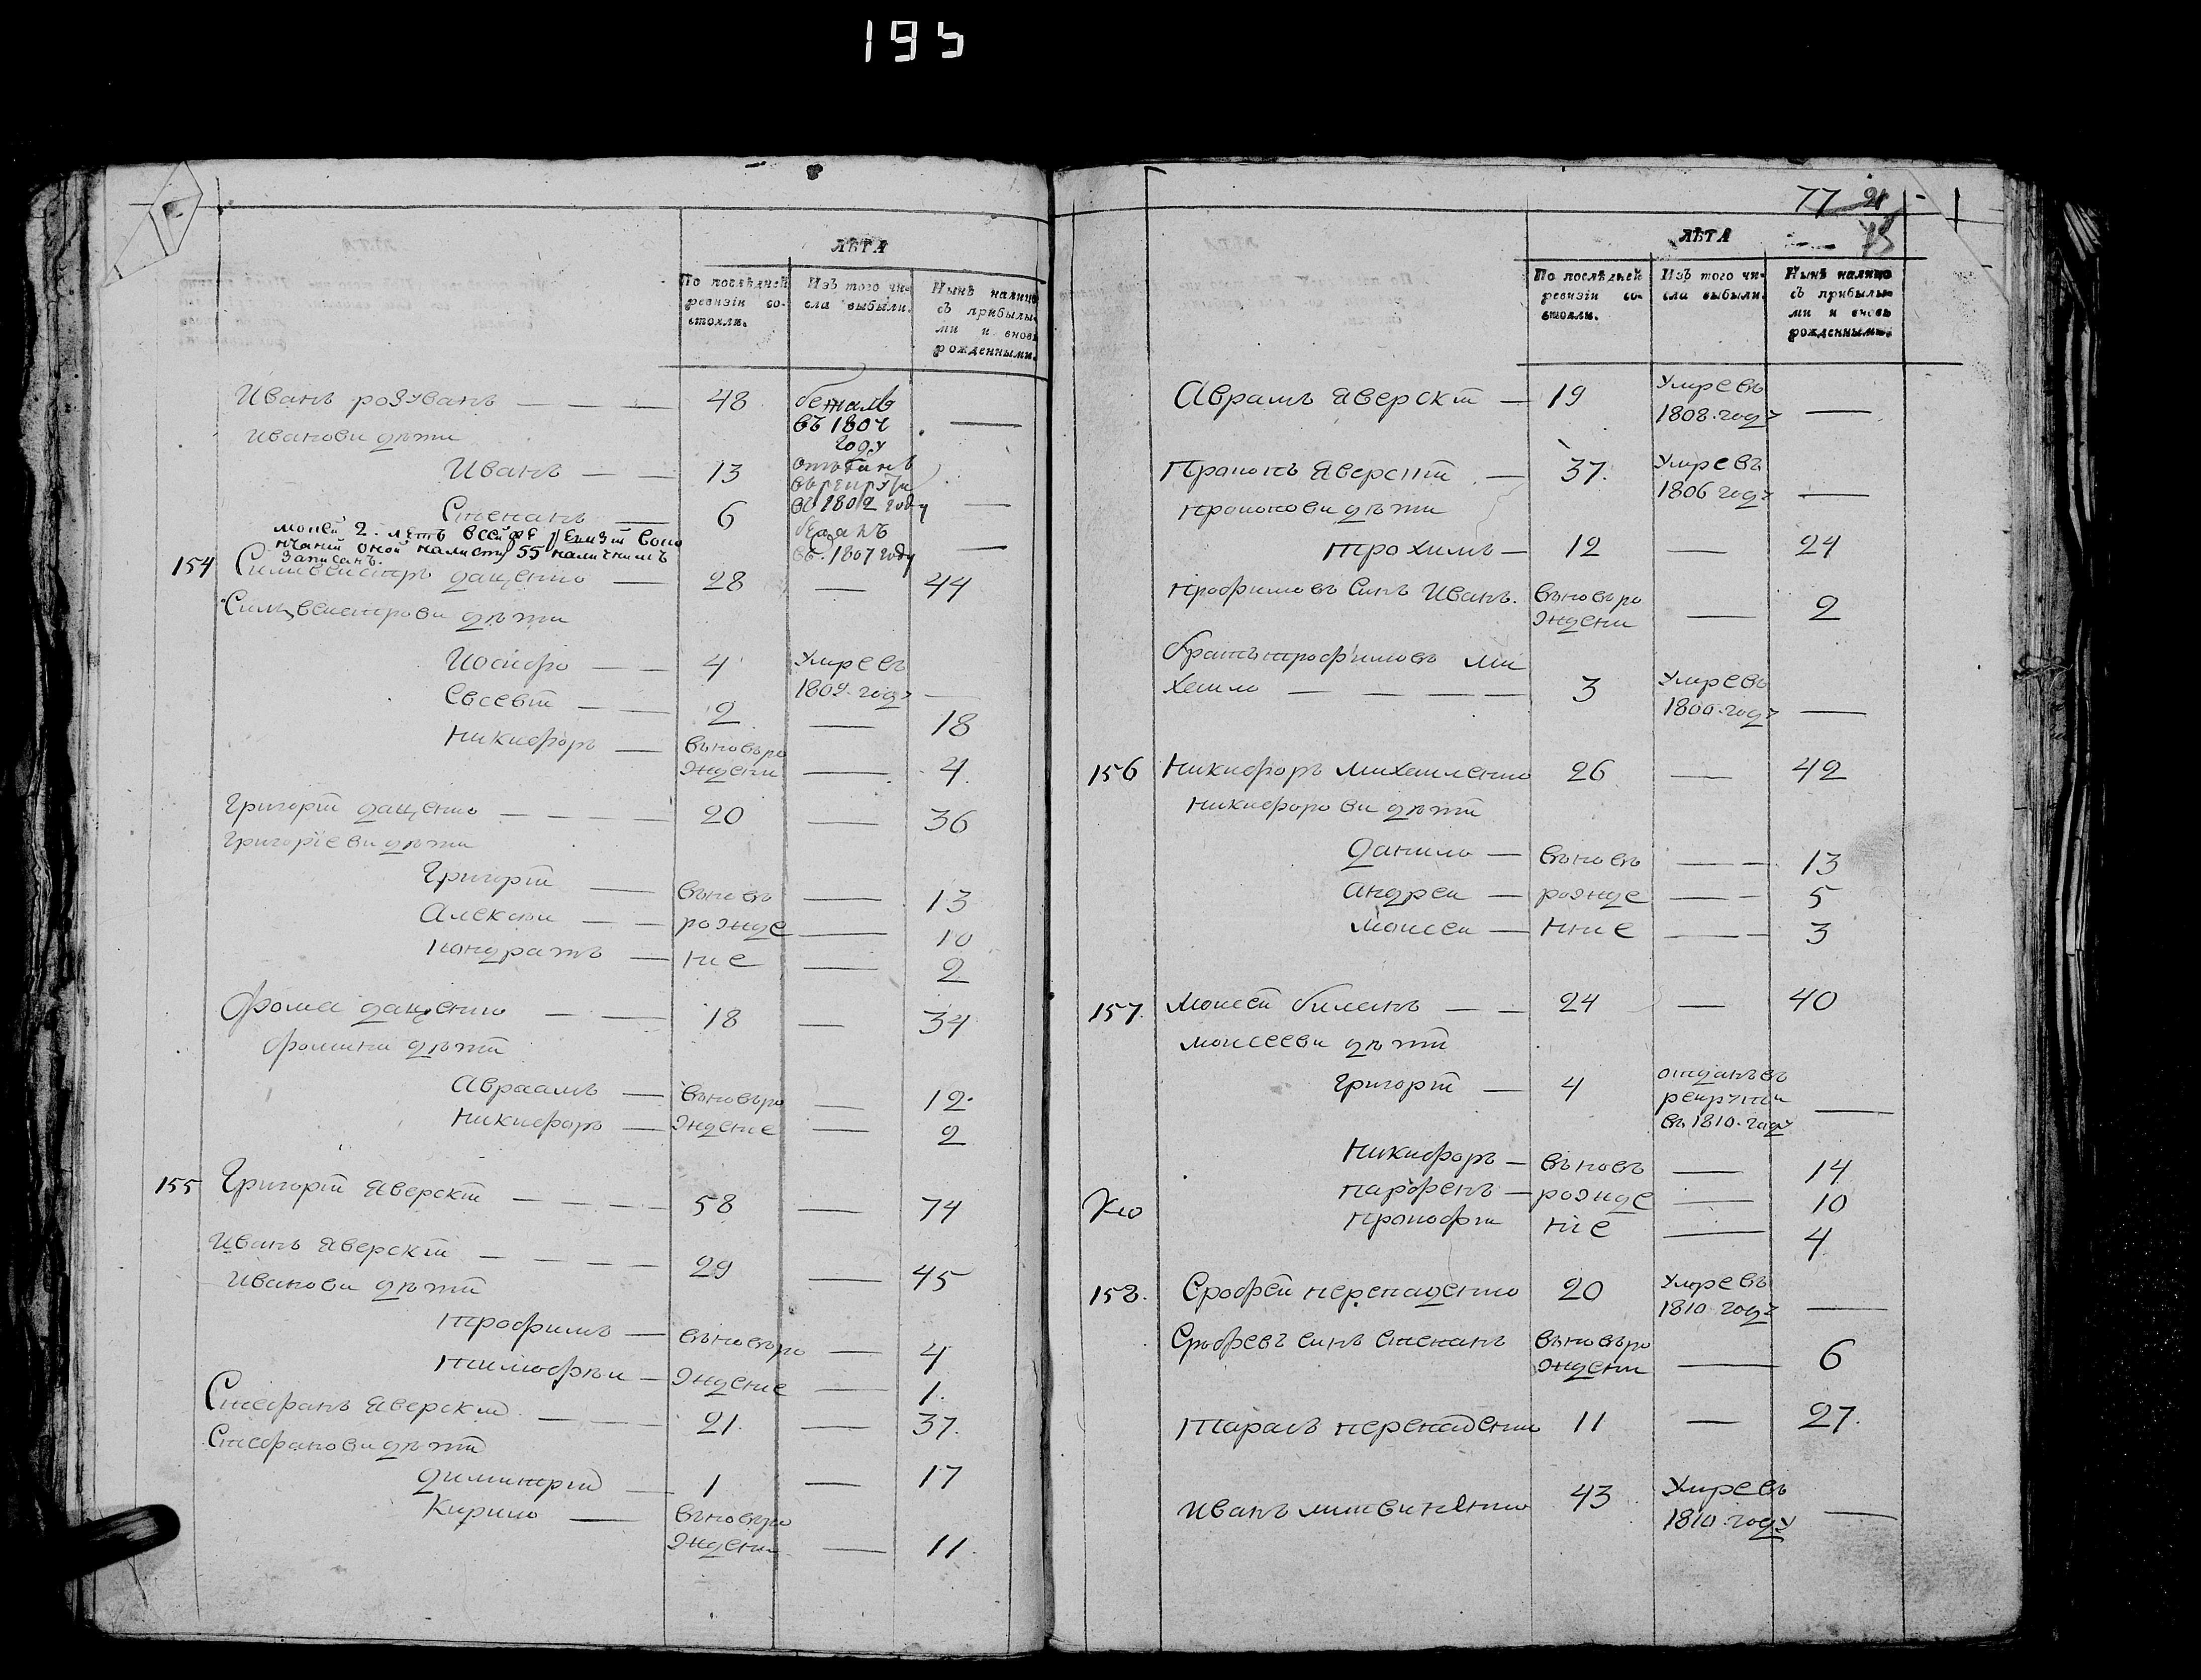 195
ЛѢТА
По послѣдней ревизіи состояли.
Изъ того числа выбыли.
Нынѣ налицо съ прибылыми и вновь рожденными.
Иванъ розуванъ — — — 48 бежалъ
въ 180 году —
Иванови дѣти
Иванъ — — 13 въ рекрути
въ 1802 году —
Степанъ — 6
въ 1807 году —
записанъ.
154 Силвейстръ дащенко — 28 — 44
Силвейстрови дѣти
Иосифо — — 4 Умре въ
1809 году —
Евсевій — — 2 — 18
Никифоръ — вьновъро
ждени — 4.
Григорій дащенко — — — — 20 — 36
Григоріеви дѣти
Григорій — вьновъ — 13
Алексѣи — — рожде — 10
Кондратъ — ние — 2
Фома дащенко — — 18 — 34
Фомини дѣти
Авраамъ — вьновъро — 12.
Никифоръ — ждение — 2
155 Григорій Яверскій — — — — 58 — 74
Иванъ Яверскій — — — — 29 — 45
Иванови дѣти
Трофимъ — вьновъро — 4
Тимофѣи — ждение — 1.
Стефанъ Яверскій — — 21. — 37.
Стефанови дѣти
Димитрій — 1 — 17
Кирило — вьновъро
ждени — 11.
77
ЛѢТА
По послѣдней ревизіи состояли.
Изъ того числа выбыли.
Нынѣ налицо съ прибылыми и вновь рожденными.
Аврамъ Яверскій — 19 Умре въ
1808. году —
Прокопъ Яверскій — 37. Умре въ
1806 году —
Прокопови дѣти
Трохимъ — 12 — 24
Трофимовъ Синъ Иванъ. вьновъро
ждени — 2
братъ трофимовъ Ми
хаило — — — — 3 Умре въ
1800. году —
156 Никифоръ Михаиленко 26 — 42
Никифорови дѣти
Данило — вьновъ — — 13
Андреи — рожде — — 5
Моисеи — ние — — 3
157. Моисей билекъ — — 24 — 40
Моисееви дѣти
Григорій — 4 отданъ въ
рекрути
въ 1810. году —
Никифоръ — вьновъ — 14
Парфенъ — рожде — 10
Прокофи ние — 4
158. Ерофей перепаденко 20 Умре въ
1810. году —
Ерофеевъ синъ степанъ вьновъро
ждени — 6
Тарасъ перепаденко 11 — 27.
Иванъ литвиненко 43 Умре въ
1810. году —